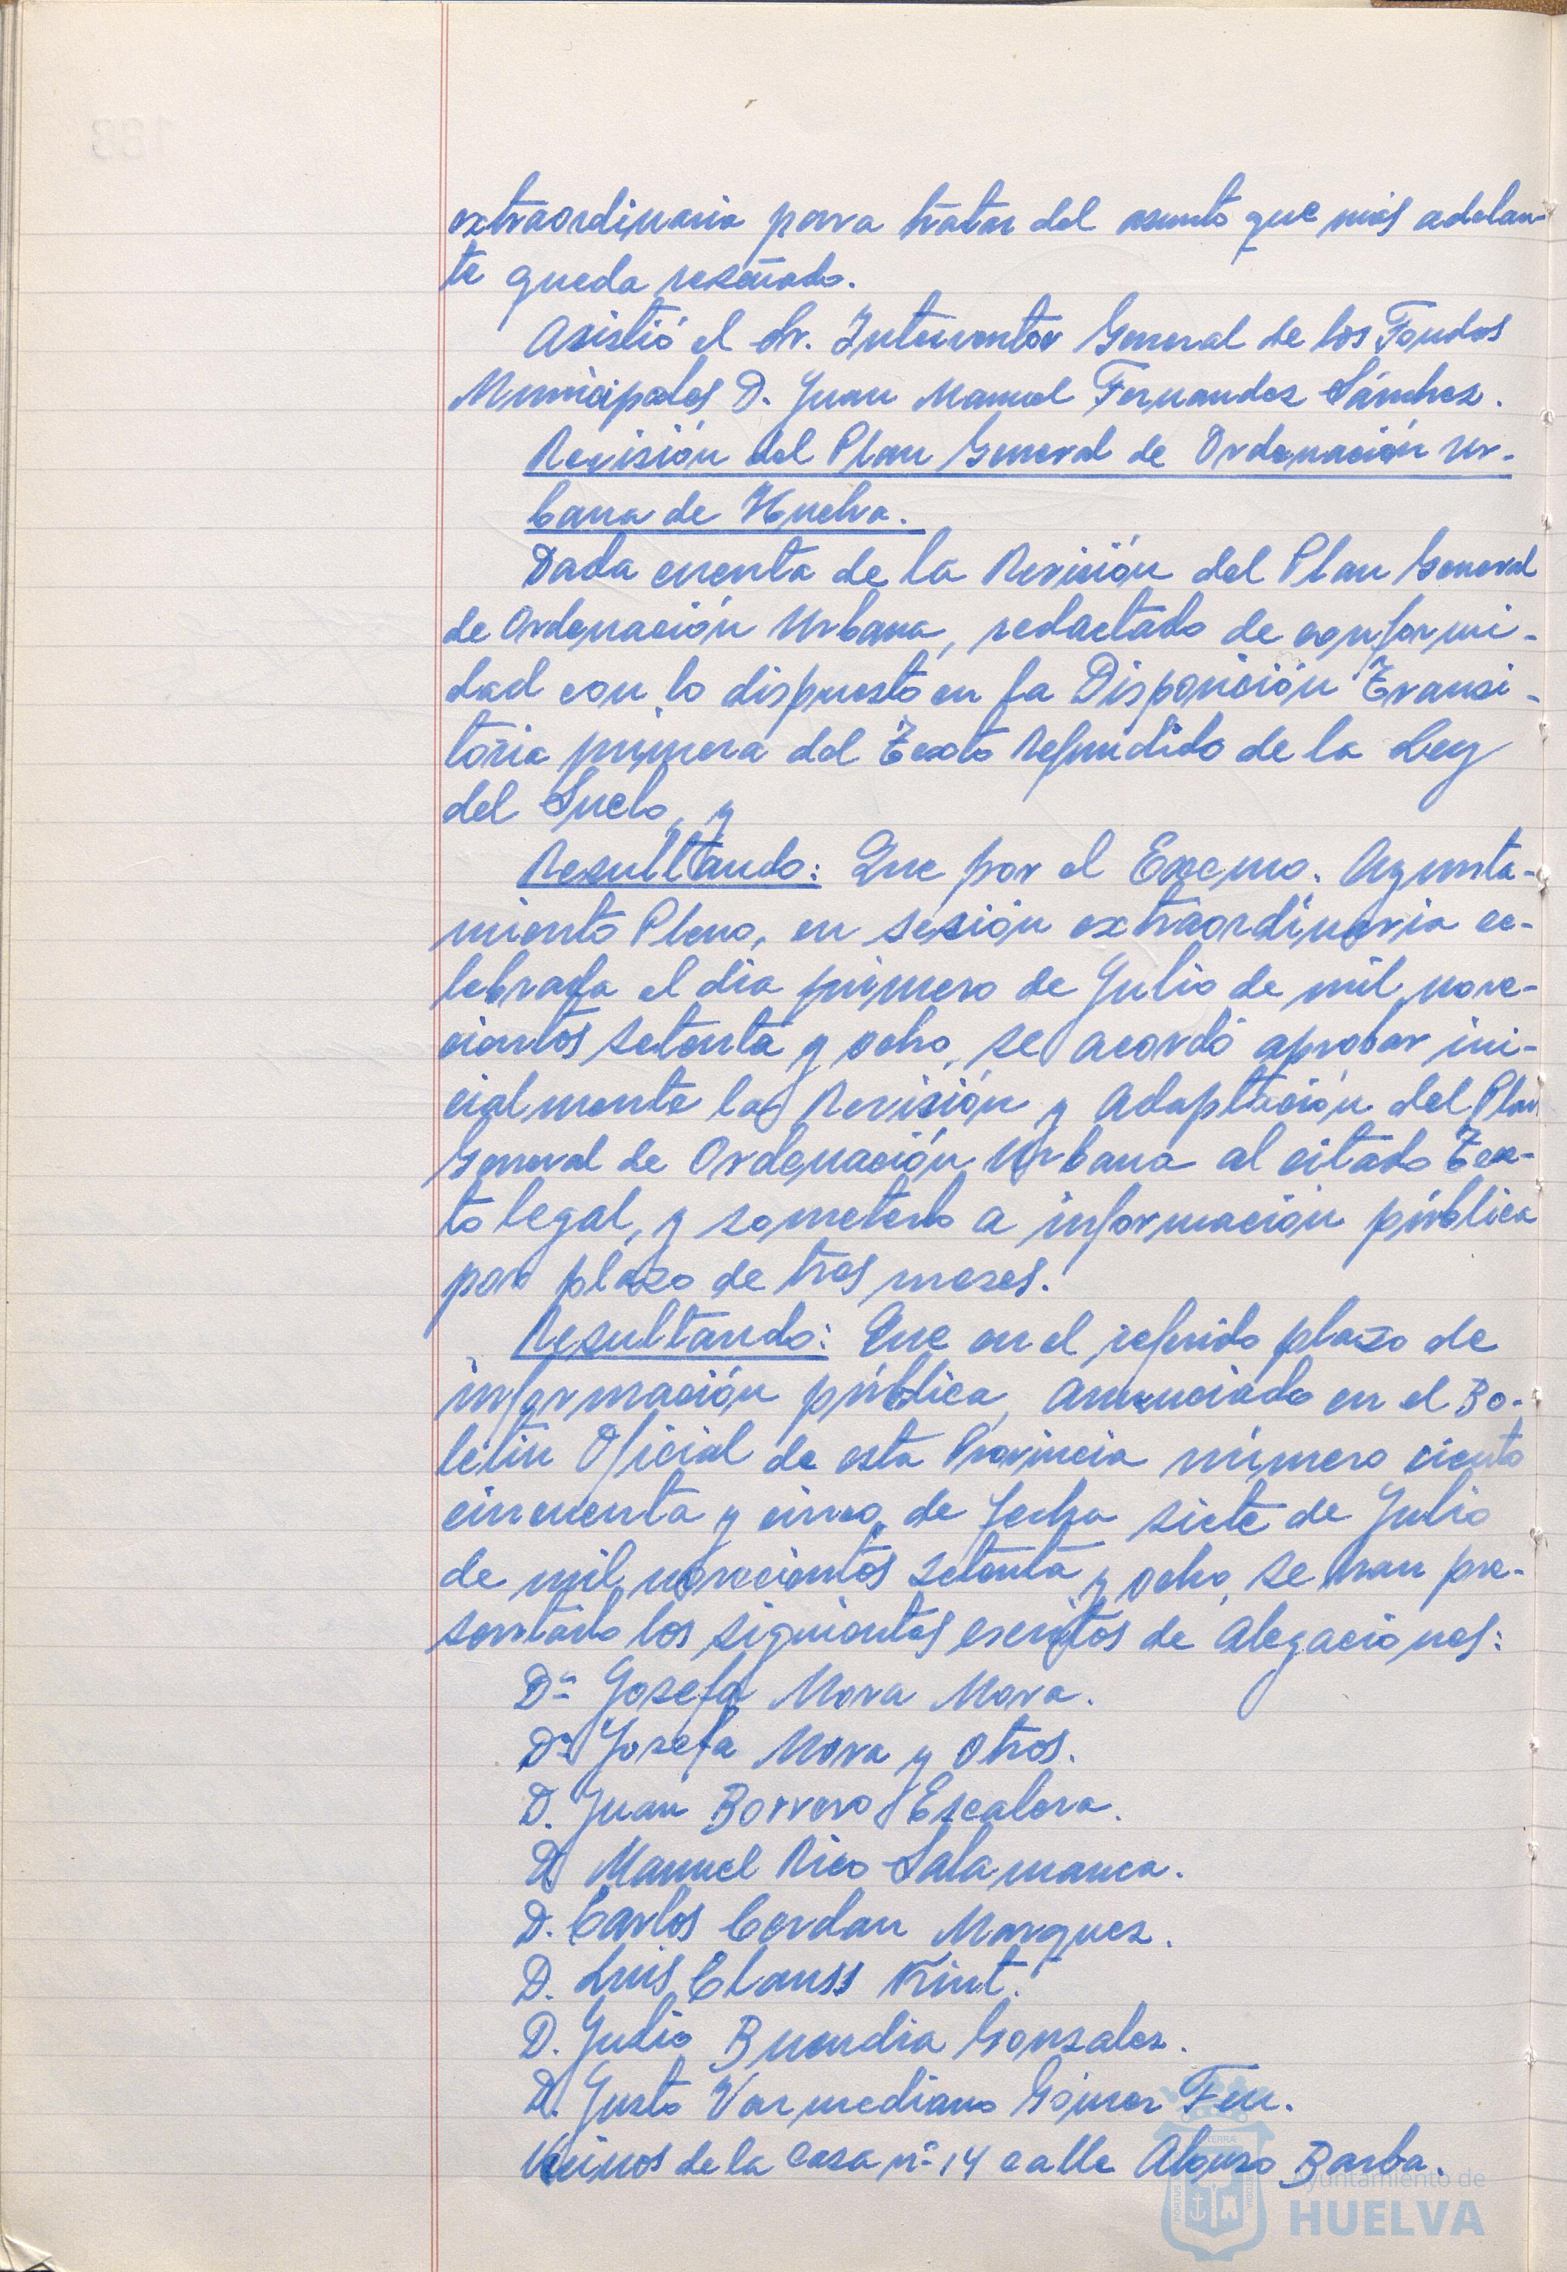 extraordinaria para tratar del asunto que más adelan-
te queda reseñado.
Asistió el Sr. Interventor General de los Fondos
Municipales D. Juan Manuel Fernandez Sánchez.
Revisión del Plan General de Ordenación Ur-
bana de Huelva.
Dada cuenta de la Revisión del Plan General
de Ordenación Urbana, redactado de conformi-
dad con lo dispuesto en la Disposición Transi-
toria primera del Texto Refundido de la Ley
del Suelo, y
Resultando: Que por el Excmo. Ayunta-
miento Pleno, en sesión extraordinaria ce-
lebrada el dia primero de Julio de mil nove-
cientos setenta y ocho, se acordó aprobar ini-
cialmente la Revisión y Adaptación del Plan
General de Ordenación Urbana al citado Tex-
to legal, y someterlo a información pública
por plazo de tres meses.
Resultando: Que en el referido plazo de
información pública, anunciado en el Bo-
letin Oficial de esta Provincia número ciento
cincuenta y cinco, de fecha siete de Julio
de mil novecientos setenta y ocho, se han pre-
sentado los siguientes escritos de alegaciones:
Dª Josefa Mora Mora.
Dª Josefa Mora y Otros.
D. Juan Borrero Escalera.
D. Manuel Rico Salamanca.
D. Carlos Cordan Marquez.
D. Luis Clauss Kint.
D. Julio Buendia Gonzalez.
D. Justo Valmediano Gómez Feu.
Vecinos de la Casa nº 14 calle Alonso Barba.
Ayuntamiento de
HUELVA